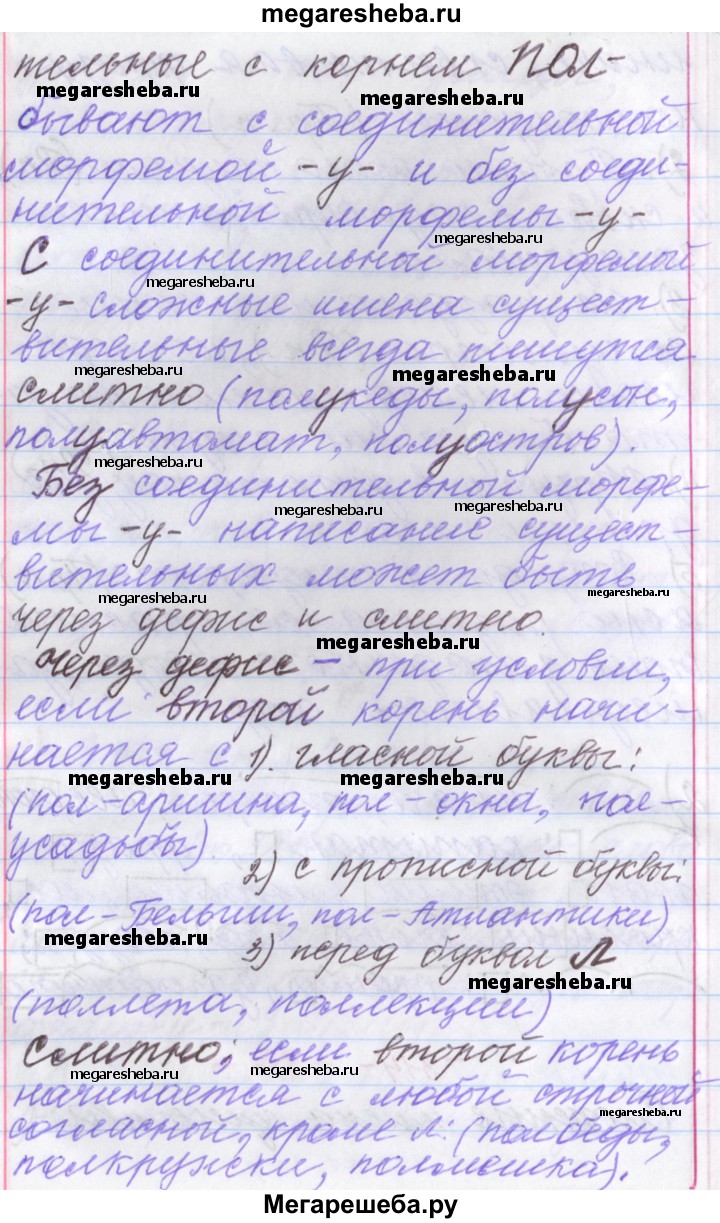 megaresheba.ru
тельные с корнем ПОЛ-
megaresheba.ru megaresheba.ru
бывают с соединительной
морфемой -у- и без соеди-
нительной морфемы -у-
megaresheba.ru
С соединительной морфемой
megaresheba.ru
-у- сложные имена сущест-
вительные всегда пишутся
megaresheba.ru megaresheba.ru
слитно (полукеды, полусон,
полуавтомат, полуостров).
megaresheba.ru
Без соединительной морфе-
megaresheba.ru megaresheba.ru
мы -у- написание сущест-
вительных может быть
megaresheba.ru megaresheba.ru
через дефис и слитно.
megaresheba.ru
Через дефис – при условии,
если второй корень начи-
нается с 1). гласной буквы:
megaresheba.ru megaresheba.ru
(пол-аршина, пол-окна, пол-
усадьбы).
2) с прописной буквы:
(пол-Бельгии, пол-Атлантики)
megaresheba.ru
3) перед буквой Л
megaresheba.ru
(поллета, поллекции)
Слитно; если второй корень
megaresheba.ru megaresheba.ru
начинается с любой строчной
megaresheba.ru
согласной, кроме л: (полбеды,
полкружки, полмешка).
Мегарешеба.ру